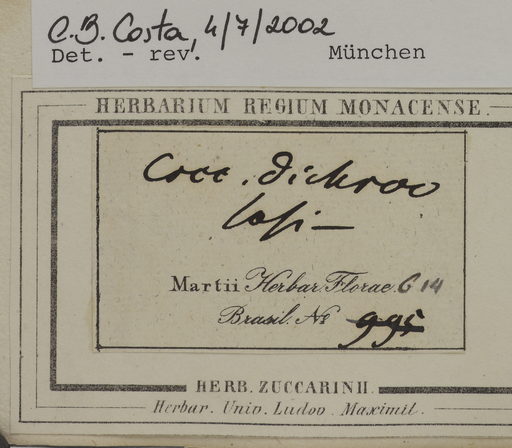 C.B. Costa, 4/7/2002
Det. - rev. München
HERBARIUM REGIUM MONACENSE.
Cocc. dichroo
lasi-
Martii Herbar. Florae. 614
Brasil. No 995
HERB. ZUCCARINII.
Herbar. Univ. Ludov. Maximil.